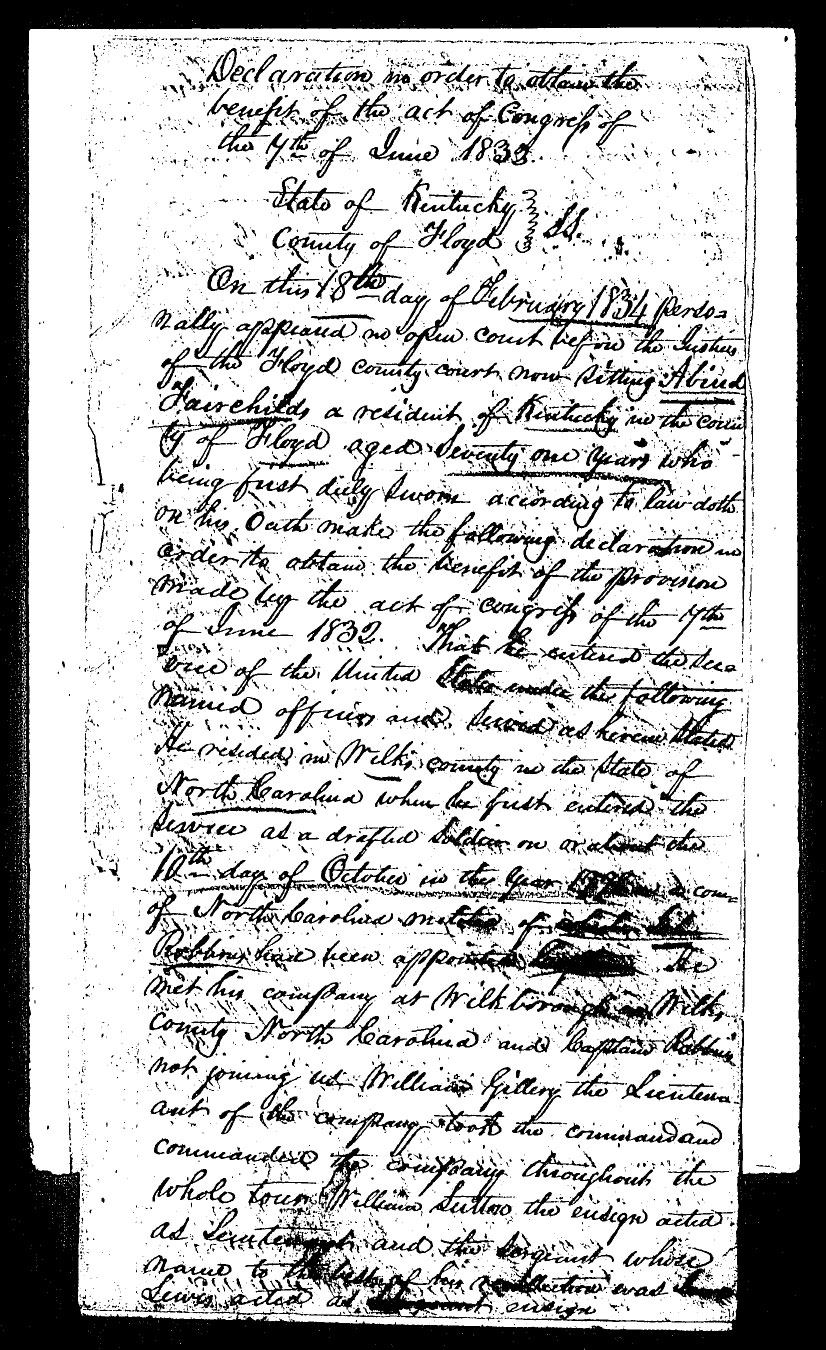 Declaration in order to obtain the
benefit of the act of Congress of
the 7th of June 1832.
State of Kentucky
County of Floyd } SS.
On this 18th day of February 1834 perso=
nally appeared in open court before the Justices
of the Floyd county court now sitting Abiud
Fairchilds a resident of Kentucky in the coun
ty of Floyd aged Seventy one years who
being first duly sworn according to law doth
on his Oath make the following declaration in
order to obtain the benefit of the provision
made by the act of congress of the 7th
of June 1832. That he entered the Ser=
vice of the United States under the following
named officers and served as herein Stated
He resided in Wilks county in the State of
North Carolina when he first entered the
service as a drafted Soldier on or about the
10th day of October in the year in a com=
of North Carolina militia of
Robbins had been appointed He
met his company at Wilkborough in Wilks
county North Carolina and Captain Robbins
not joining us William Gillery the Lieuten
ant of the company took the command and
commanded the company throughout the
whole tour William Sutton the ensign acted
as Lieutenant and the sergeant whose
name to the best of his recollection was
Lewis acted as ensign